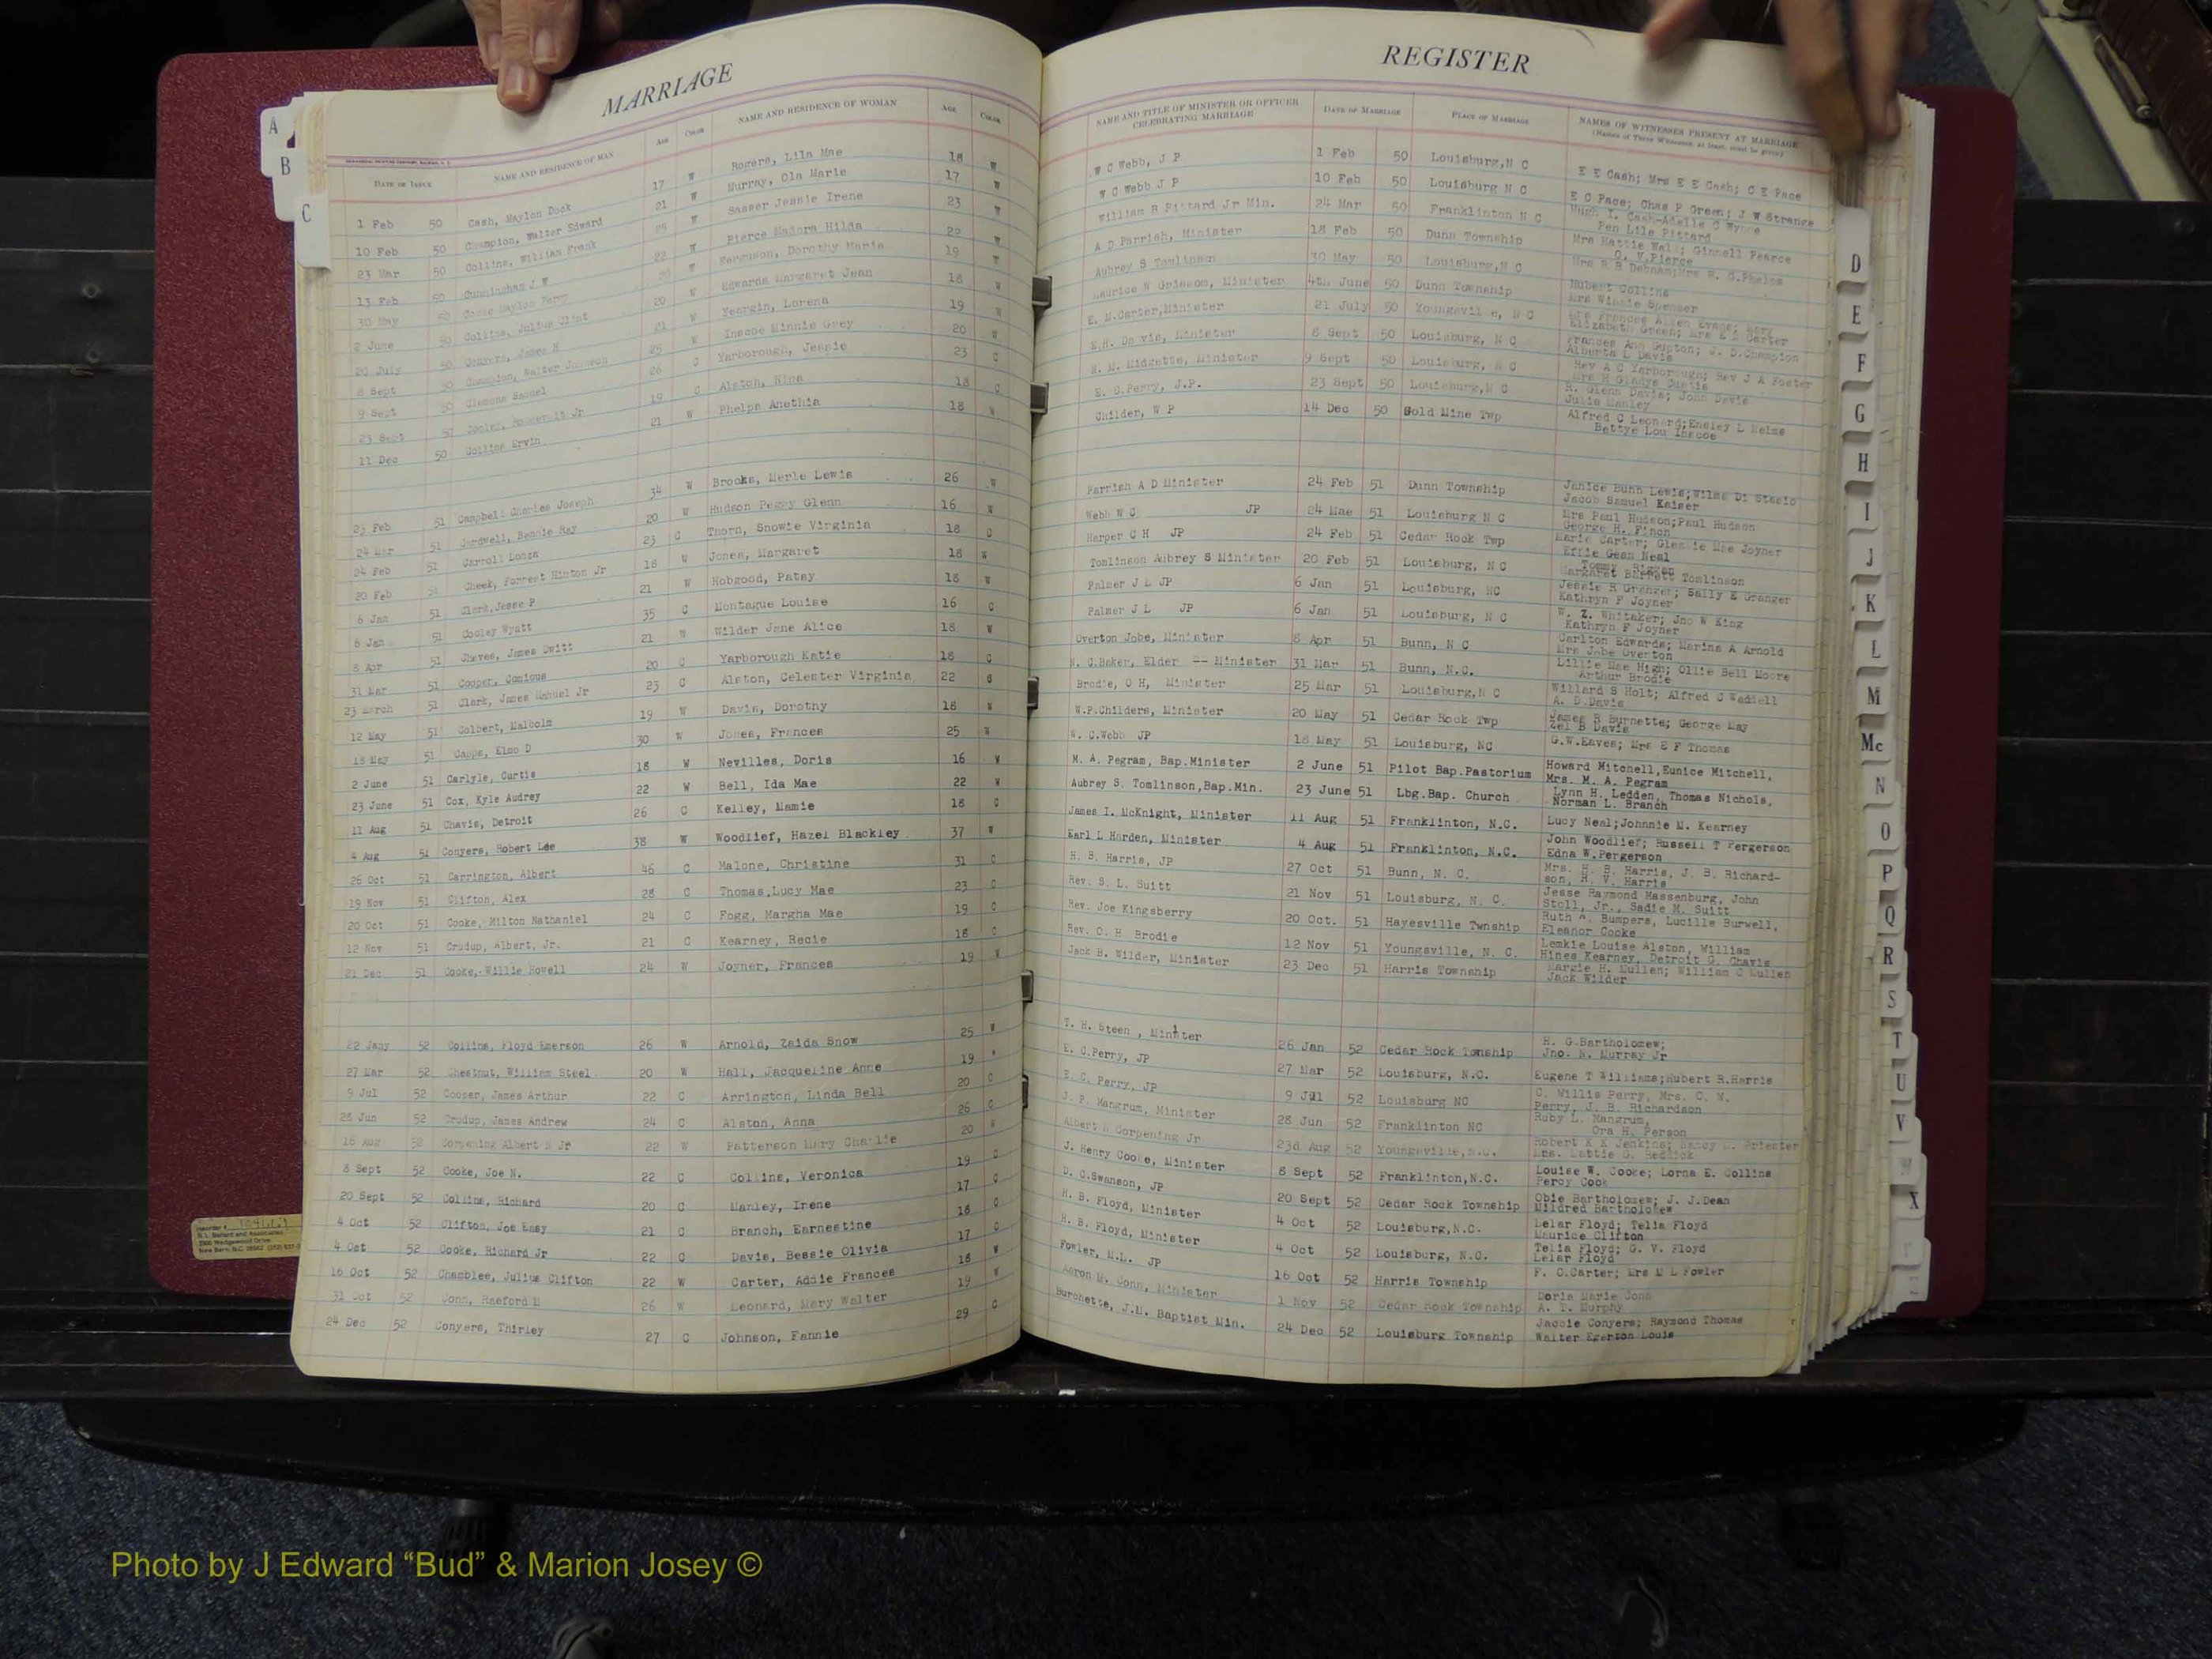 MARRIAGE
DATE OF ISSUE NAME AND RESIDENCE OF MAN AGE COLOR NAME AND RESIDENCE OF WOMAN AGE COLOR
1 Feb 50 Cash, Maylon Dock 17 W Rogers, Lila Mae 18 W
10 Feb 50 Champion, Walter Edward 21 W Murray, Ola Marie 17 W
23 Mar 50 Collins, William Frank 25 W Sasser Jessie Irene 23 W
13 Feb 50 Cunningham J W 22 W Pierce Madora Hilda 22 W
30 May 50 Maylon Perry 20 W Ferguson, Dorothy Marie 19 W
2 June 50 Collins, Julius Clint 20 W Edwards Margaret Jean 18 W
20 July 50 Conyers, James H 21 W Yeargin, Lorena 19 W
8 Sept 50 Champion, Walter Johnson 25 W Inscoe Minnie Grey 20 W
9 Sept 50 Clemons Samuel 26 C Yarborough, Jessie 23 C
23 Sept 50 Cooley, Roosevelt Jr 19 C Alston, Nina 18 C
11 Dec 50 Collins Ervin 21 W Phelps Anethia 18 W
23 Feb 51 Campbell Charles Joseph 34 W Brooks, Merle Lewis 26 W
24 Mar 51 Cardwell, Bennie Ray 20 W Hudson Peggy Glenn 16 W
24 Feb 51 Carroll Lonza 23 C Thorn, Snowie Virginia 18 C
20 Feb 51 Cheek, Forrest Hinton Jr 18 W Jones, Margaret 18 W
6 Jan 51 Clark, Jesse P 21 W Hobgood, Patsy 18 W
6 Jan 51 Cooley Wyatt 35 C Montague Louise 16 C
8 Apr 51 Chaves, James Dwitt 21 W Wilder Jane Alice 18 W
31 Mar 51 Cooper, Conious 20 C Yarborough Katie 18 C
23 March 51 Clark, James Manuel Jr 23 C Alston, Celester Virginia 22 C
12 May 51 Colbert, Malcolm 19 W Davis, Dorothy 18 W
18 May 51 Capps, Elmo D 30 W Jones, Frances 25 W
2 June 51 Carlyle, Curtis 18 W Nevilles, Doris 16 W
23 June 51 Cox, Kyle Audrey 22 W Bell, Ida Mae 22 W
11 Aug 51 Chavis, Detroit 26 C Kelley, Mamie 18 C
4 Aug 51 Conyers, Robert Lee 38 W Woodlief, Hazel Blackley 37 W
26 Oct 51 Carrington, Albert 46 C Malone, Christine 31 C
19 Nov 51 Clifton, Alex 28 C Thomas,Lucy Mae 23 C
20 Oct 51 Cooke, Milton Nathaniel 24 C Fogg, Margha Mae 19 C
12 Nov 51 Crudup, Albert, Jr. 21 C Kearney, Recie 18 C
21 Dec 51 Cooke, Willie Howell 24 W Joyner, Frances 19 W
22 Jany 52 Collins, Floyd Emerson 26 W Arnold, Zaida Snow 25 W
27 Mar 52 Chestnut, William Steel 20 W Hall, Jacqueline Anne 19
9 Jul 52 Cooper, James Arthur 22 C Arrington, Linda Bell 20 C
28 Jun 52 Crudup, James Andrew 24 C Alston, Anna 26 C
16 Aug 52 Corpening Albert N Jr 22 W Patterson Mary Charlie 20 W
8 Sept 52 Cooke, Joe N. 22 C Collins, Veronica 19 C
20 Sept 52 Collins, Richard 20 C Manley, Irene 17 C
4 Oct 52 Clifton, Joe Easy 21 C Branch, Earnestine 18 C
4 Oct 52 Cooke, Richard Jr 22 C Davis, Bessie Olivia 17 C
16 Oct 52 Chamblee, Julius Clifton 22 W Carter, Addie Frances 18 W
31 Oct 52 Conn, Raeford M 26 W Leonard, Mary Walter 19 W
24 Dec 52 Conyers, Thirley 27 C Johnson, Fannie 29 C
REGISTER
NAME AND TITLE OF MINISTER OR OFFICER CELEBRATING MARRIAGE DATE OF MARRIAGE PLACE OF MARRIAGE NAMES OF WITNESSES PRESENT AT MARRIAGE
(Names of Three Witnesses, at least, must be given)
W C Webb, J P 1 Feb 50 Louisburg,N C E E Cash; Mrs E E Cash; C E Pace
W C Webb J P 10 Feb 50 Louisburg N C E C Pace; Chas P Green; J W Strange
William B Pittard Jr Min. 24 Mar 50 Franklinton N C Hugh I. Cash-Adelle C Wynne
Pen Lile Pittard
A D Parrish, Minister 18 Feb 50 Dunn Township Mrs Hattie Wall; Ginnell Pearce
O. V.Pierce
Aubrey S Tomlinson 30 May 50 Louisburg,N C Mrs R B Debnam;Mrs H. G.Phelps
Maurice W Grissom, Minister 4th June 50 Dunn Township Hubert Collins
Mrs Winnie Spenser
E. M.Carter,Minister 21 July 50 Youngsville, N C Mrs Frances Allen Evans; Mary
Elizabeth Green; Mrs E M Carter
E.H. Davis, Minister 8 Sept 50 Louisburg, N C Frances Ann Gupton; J. S.Champion
Alberta L Davis
H. M. Midgette, Minister 9 Sept 50 Louisburg, N C Rev A C Yarborough; Rev J A Foster
Mrs R Gladys Custis
E. C.Perry, J.P. 23 Sept 50 Louisburg,N C R. Glenn Davis; John Davis
Julia Manley
Childer, W P 14 Dec 50 Gold Mine Twp Alfred C Leonard;Ensley L Nelms
Bettye Lou Inscoe
Parrish A D Minister 24 Feb 51 Dunn Township Janice Bunn Lewis;Wilma Di Stasio
Jacob Samuel Kaiser
Webb W C JP 24 Mae 51 Louisburg N C Mrs Paul Hudson;Paul Hudson
George H. Finch
Harper C H JP 24 Feb 51 Cedar Rock Twp Marie Carter; Glennie Mae Joyner
Effie Gean Neal
Tomlinson Aubrey S Minister 20 Feb 51 Louisburg, N C Tommy Riggan
Margaret Barrett Tomlinson
Palmer J L JP 6 Jan 51 Louisburg, NC Jessie R Granger; Sally E Granger
Kathryn F Joyner
Palmer J L JP 6 Jan 51 Louisburg, N C W. Z. Whitaker; Jno W King
Kathryn F Joyner
Overton Jobe, Minister 8 Apr 51 Bunn, N C Carlton Edwards; Marina A Arnold
Mrs Jobe Overton
N. C.Baker, Elder -- Minister 31 Mar 51 Bunn, N.C. Lillie Mae High; Ollie Bell Moore
Arthur Brodie
Brodie, O H, Minister 25 Mar 51 Louisburg,N C Willard S Holt; Alfred C Waddell
A. D.Davis
W.P.Childers, Minister 20 May 51 Cedar Rock Twp James R Burnette; George May
Zel B Davis
W. C.Webb JP 18 May 51 Louisburg, NC G.W.Eaves; Mrs E F Thomas
M. A. Pegram, Bap.Minister 2 June 51 Pilot Bap.Pastorium Howard Mitchell,Eunice Mitchell,
Mrs. M. A. Pegram
Aubrey S. Tomlinson,Bap.Min. 23 June 51 Lbg.Bap. Church Lynn H. Ledden, Thomas Nichols,
Norman L. Branch
James I. McKnight, Minister 11 Aug 51 Franklinton, N.C. Lucy Neal;Johnnie M. Kearney
Earl L Harden, Minister 4 Aug 51 Franklinton, N.C. John Woodlief; Russell T Pergerson
Edna W.Pergerson
H. B. Harris, JP 27 Oct 51 Bunn, N. C. Mrs. H. B. Harris, J. B. Richard-
son, H. V. Harris
Rev. S. L. Suitt 21 Nov 51 Louisburg, N. C. Jesse Raymond Massenburg, John
Stoll, Jr., Sadie M. Suitt
Rev. Joe Kingsberry 20 Oct. 51 Hayesville Twnship Ruth A. Bumpers, Lucille Burwell,
Eleanor Cooke
Rev. O. H. Brodie 12 Nov 51 Youngsville, N. C. Lemkie Louise Alston, William
Hines Kearney, Detroit G. Chavis
Jack B. Wilder, Minister 23 Dec 51 Harris Township Margie H. Mullen; William C Mullen
Jack Wilder
T. H. Steen , Minister 26 Jan 52 Cedar Rock Tonship H. G.Bartholomew;
Jno. N. Murray Jr
E. C.Perry, JP 27 Mar 52 Louisburg, N.C. Eugene T Williams;Hubert R.Harris
E. C. Perry, JP 9 Jul 52 Louisburg NC C. Willis Perry, Mrs. C. W.
Perry, J. B. Richardson
J. P. Mangrum, Minister 28 Jun 52 Franklinton NC Ruby L. Mangrum,
Ora H. Person
Albert N Corpening Jr 23d Aug 52 Youngsville,N.C. Robert K K Jenkins; Nancy M. Priester
Mrs. Mattie G. Redrick
J. Henry Cooke, Minister 8 Sept 52 Franklinton,N.C. Louise W. Cooke; Lorna E. Collins
Percy Cook
D. C.Swanson, JP 20 Sept 52 Cedar Rock Township Obie Bartholomew; J. J.Dean
Mildred Bartholomew
H. B. Floyd, Minister 4 Oct 52 Louisburg,N.C. Lelar Floyd; Telia Floyd
Maurice Clifton
H. B. Floyd, Minister 4 Oct 52 Louisburg, N.C. Telia Floyd; G. V. Floyd
Lelar Floyd
Fowler, M.L. JP 16 Oct 52 Harris Township F. C.Carter; Mrs M L Fowler
Aaron M. Conn, Minister 1 Nov 52 Cedar Rock Township Doris Marie Conn
A. T. Murphy
Burchette, J.M. Baptist Min. 24 Dec 52 Louisburg Township Jaccie Conyers; Raymond Thomas
Walter Egerton Louis
A
B
C
D
E
F
G
H
I
J
K
L
M
Mc
N
O
P
Q
R
S
T
U
V
W
X
Y
Photo by J Edward “Bud” & Marion Josey ©